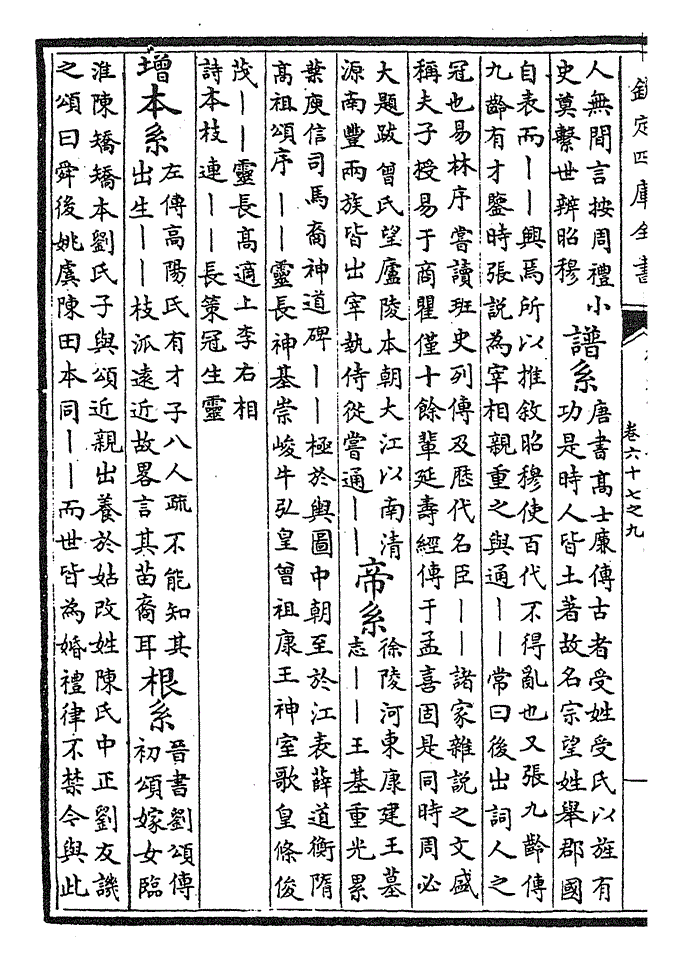 欽定四庫全書
卷六十七之九
人無間言按周禮小
史奠繫世辨昭穆
譜系
唐書髙士廉傳古者受姓受氏以旌有
功是時人皆土著故名宗望姓舉郡國
自表而丨丨興焉所以推敘昭穆使百代不得亂也又張九齡傳
九齡有才鑒時張説為宰相親重之與通丨丨常曰後出詞人之
冠也易林序嘗讀班史列傳及歴代名臣丨丨諸家雜説之文盛
稱夫子授易于商瞿僅十餘輩延壽經傳于孟喜固是同時周必
大題跋曾氏望廬陵本朝大江以南清
源南豐兩族皆出宰執侍從嘗通丨丨
帝系
徐陵河東康建王墓
志丨丨王基重光累
葉庾信司馬裔神道碑丨丨極於輿圖中朝至於江表薛道衡隋
髙祖頌序丨丨靈長神基崇峻牛弘皇曾祖康王神室歌皇條俊
茂丨丨靈長髙適上李右相
詩本枝連丨丨長策冠生靈
增本系
左傳高陽氏有才子八人疏不能知其
出生丨丨枝派遠近故畧言其苗裔耳
根系
晉書劉頌傳
初頌嫁女臨
淮陳矯矯本劉氏子與頌近親出養於姑改姓陳氏中正劉友譏
之頌曰舜後姚虞陳田本同丨丨而世皆為婚禮律不禁今與此